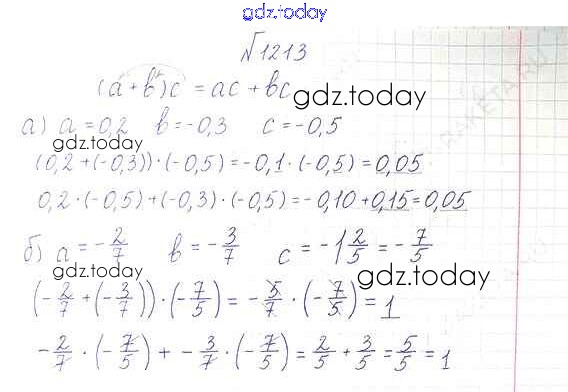 gdz.today
№1213
(a + b)c = ac + bc
gdz.today
а) a = 0,2 b = -0,3 c = -0,5
gdz.today
(0,2 + (-0,3)) · (-0,5) = -0,1 · (-0,5) = 0,05
0,2 · (-0,5) + (-0,3) · (-0,5) = -0,10 + 0,15 = 0,05
gdz.today
б) a = -2/7 b = -3/7 c = -1 2/5 = -7/5
gdz.today
gdz.today
(-2/7 + (-3/7)) · (-7/5) = -5/7 · (-7/5) = 1
-2/7 · (-7/5) + -3/7 · (-7/5) = 2/5 + 3/5 = 5/5 = 1
gdz.today